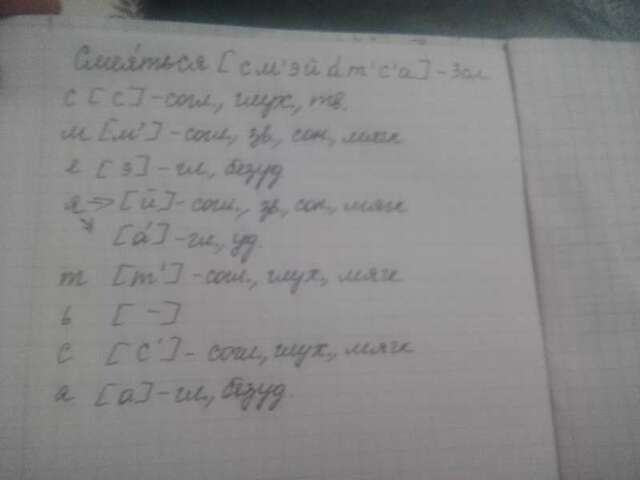 Смея́ться [см'эйа́т'с'а] - 3сл
с [с] - согл, глух, тв.
м [м'] - согл, зв, сон, мягк
е [э] - гл, безуд
я → [й] - согл., зв, сон, мягк
↘ [а́] - гл, уд.
т [т'] - согл., глух, мягк
ь [-]
с [с'] - согл, глух, мягк
я [а] - гл, безуд.